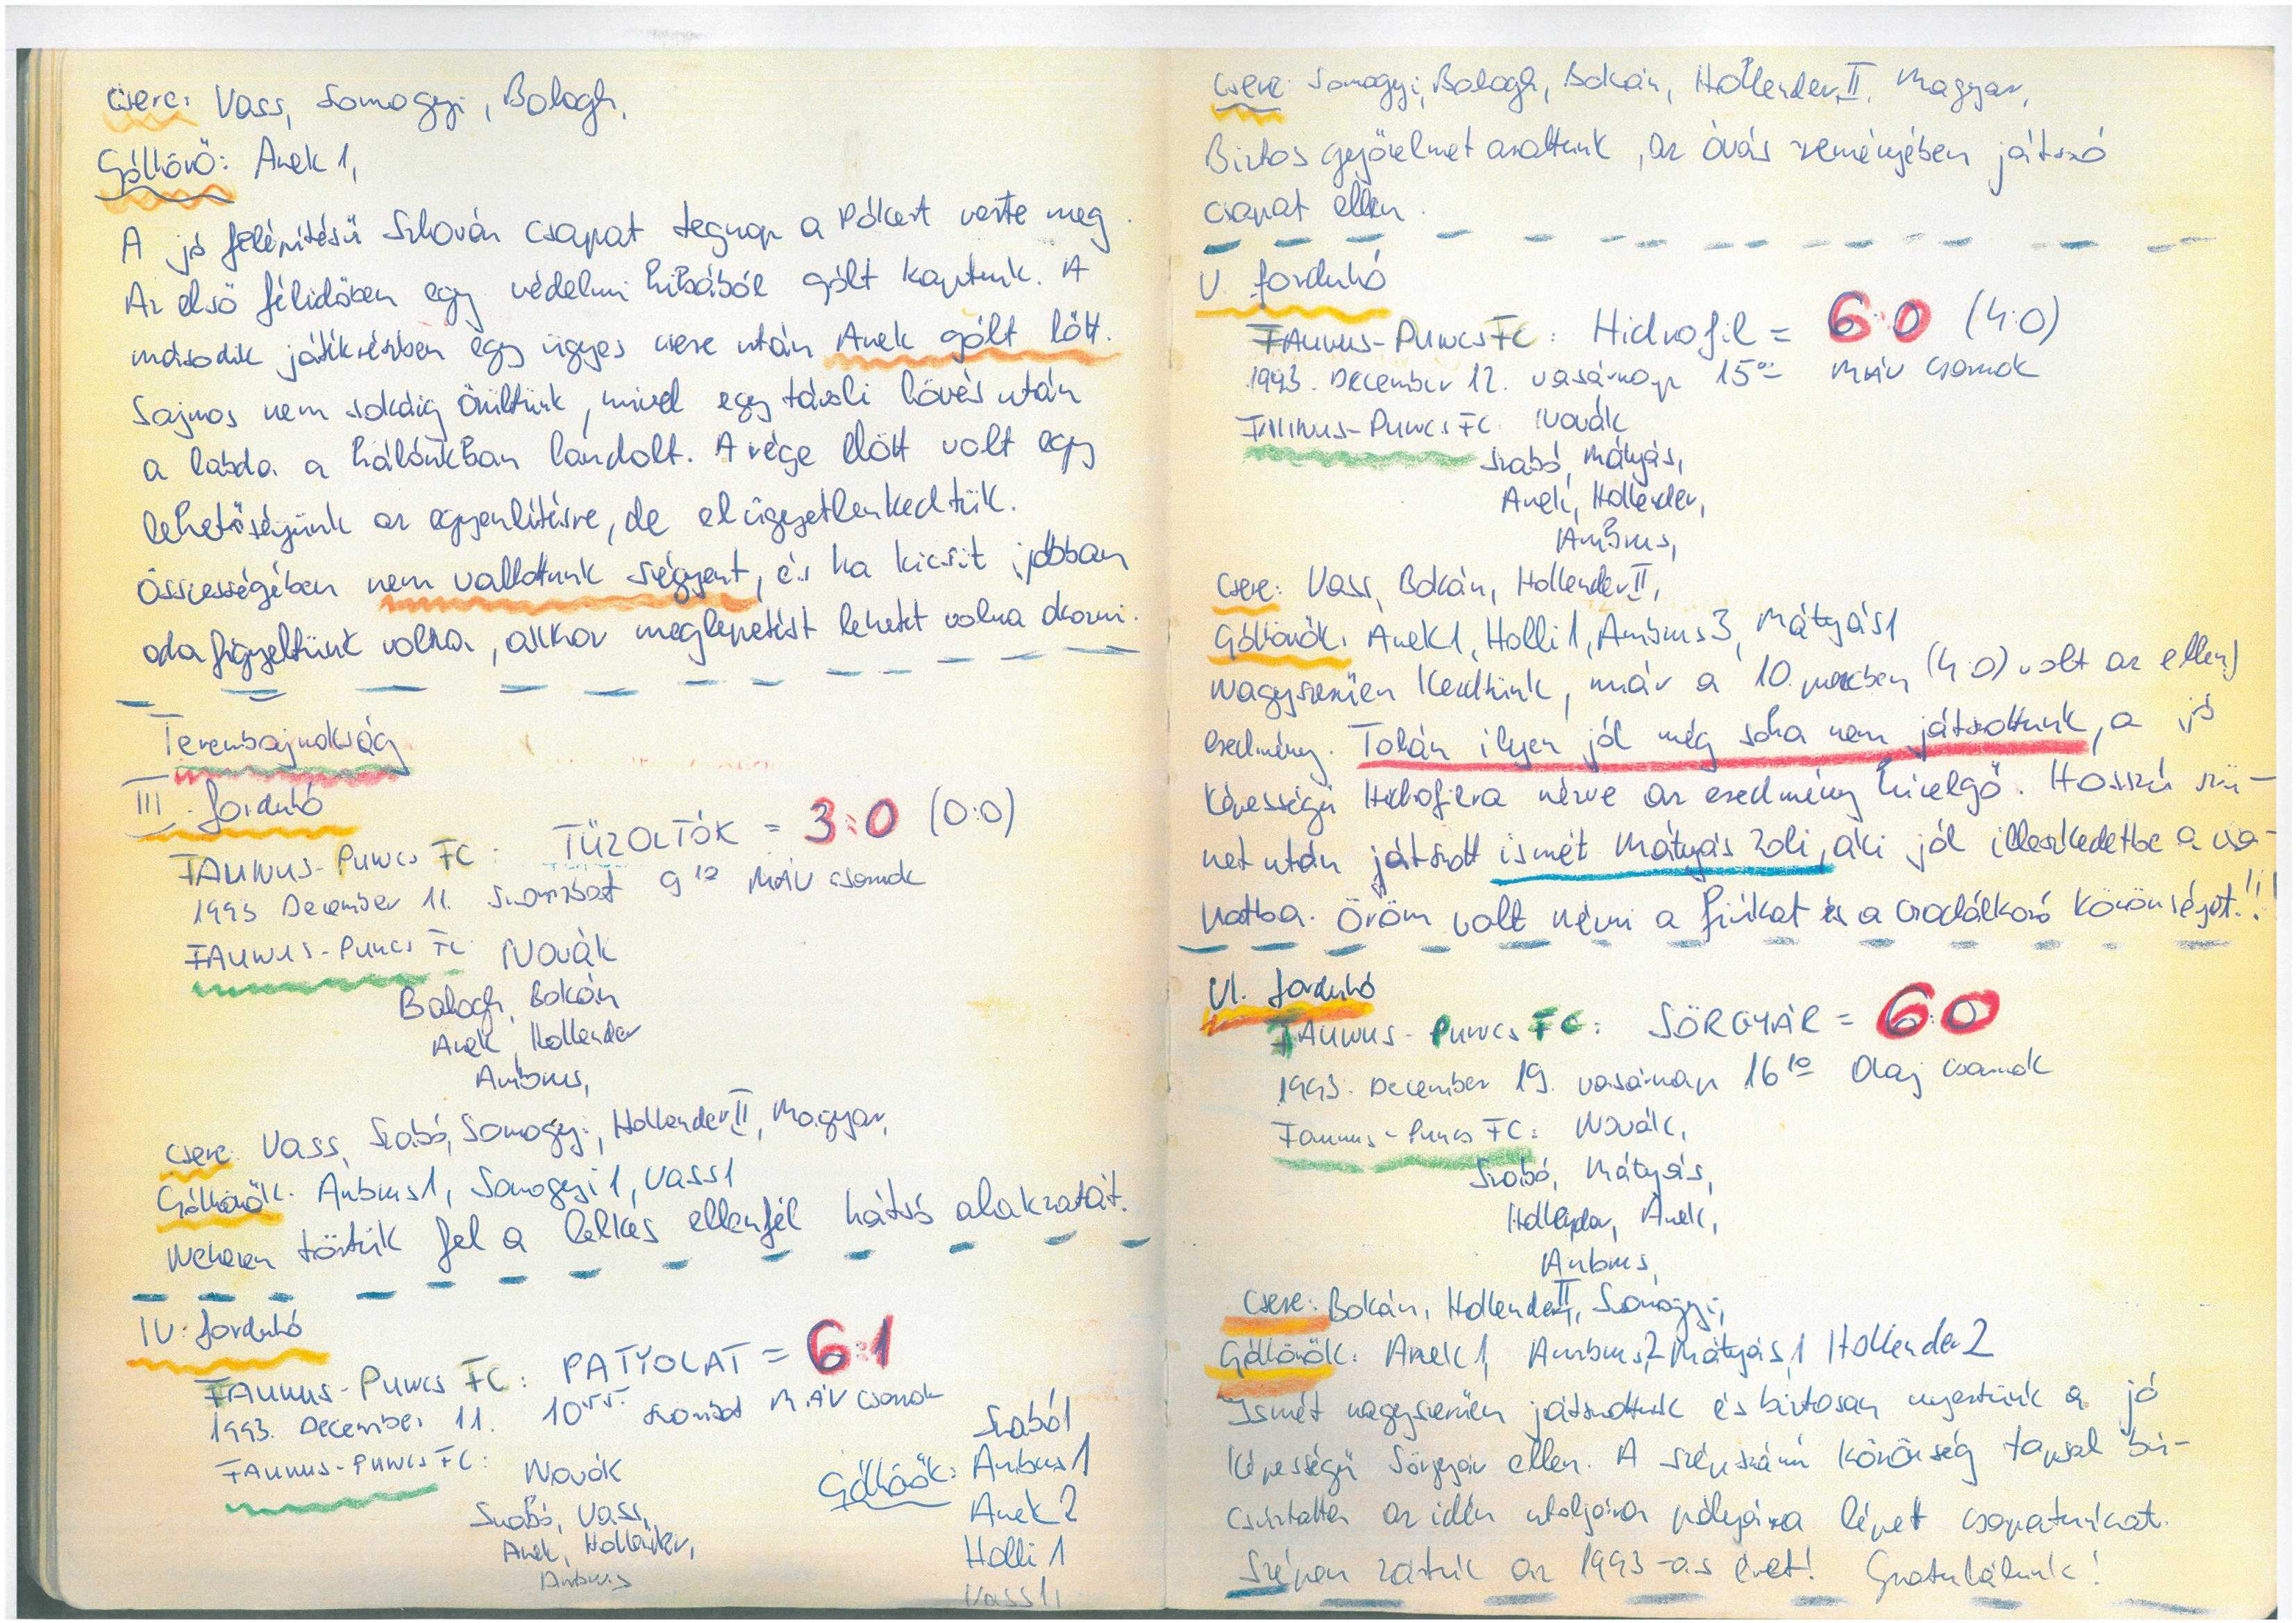 Csere: Vass, Somogyi, Balogh,
Góllövő: Anek 1,
A jó felépítésű Szlovan csapat tegnap a Pókert verte meg.
Az első félidőben egy védelmi hibából gólt kaptunk. A
második játékrészben egy ügyes csere után Anek gólt lőtt.
Sajnos nem sokáig örültünk, mivel egy távoli lövés után
a labda a hálónkban landolt. A vége előtt volt egy
lehetőségünk az egyenlítésre, de elügyetlenkedtük.
Összességében nem vallottunk szégyent, és ha kicsit jobban
odafigyeltünk volna, akkor meglepetést lehetet volna okozni.
Terembajnokság
III. forduló
TAUNUS-PUNCS FC: TŰZOLTÓK = 3:0 (0:0)
1993 December 11. Szombat 9¹⁰ MÁV csarnok
TAUNUS-PUNCS FC Novák
Balogh, Bokán
Anek, Hollender
Ambrus,
Csere: Vass, Szabó, Somogyi, Hollender II, Magyar,
Góllövők: Ambrus 1, Somogyi 1, Vass 1
Nehezen törtük fel a lelkes ellenfél hátsó alakzatát.
IV. forduló
TAUNUS-PUNCS FC: PATYOLAT = 6:1
1993. December 11. 10⁵⁵ szombat MÁV csarnok
TAUNUS-PUNCS FC: Novák
Szabó, Vass,
Anek, Hollender,
Ambrus
Góllövők: Szabó 1
Ambrus 1
Anek 2
Holli 1
Vass 1,
Csere: Somogyi, Balogh, Bokán, Hollender II. Magyar,
Biztos győzelmet arattunk, az óvás reményében játszó
csapat ellen.
V. forduló
TAUNUS-PUNCS FC: Hidrofil = 6:0 (4:0)
1993. December 12. vasárnap 15⁰⁰ MÁV csarnok
TAUNUS-PUNCS FC Novák
Szabó, Mátyás,
Anek, Hollender,
Ambrus,
Csere: Vass, Bokán, Hollender II,
Góllövők: Anek 1, Holli 1, Ambrus 3, Mátyás 1
Nagyszerűen kezdtünk, már a 10. percben (4:0) volt az ellen)
eredmény. Talán ilyen jól még soha nem játszottunk, a jó
képességű Hidrofilra nézve az eredmény hízelgő. Hosszú szü-
net után játszott ismét Mátyás Zoli, aki jól illeszkedetbe a csa-
patba. Öröm volt nézni a fiúkat és a csodálkozó közönséget.!!!
VI. forduló
TAUNUS-PUNCS FC: SÖRGYÁR = 6:0
1993. December 19. vasárnap 16¹⁰ Olaj csarnok
Taunus-Puncs FC: Novák,
Szabó, Mátyás,
Hollender, Anek,
Ambrus,
Csere: Bokán, Hollender II, Somogyi,
Góllövők: Anek 1, Ambrus, 2 Mátyás, 1 Hollender 2
Ismét nagyszerűen játszottunk és biztosan nyertünk a jó
képességű Sörgyár ellen. A szépszámú közönség tapsal bú-
csúztatta az idén utoljára pályára lépett csapatunkat.
Szépen zártuk az 1993-as évet! Gratulálunk!